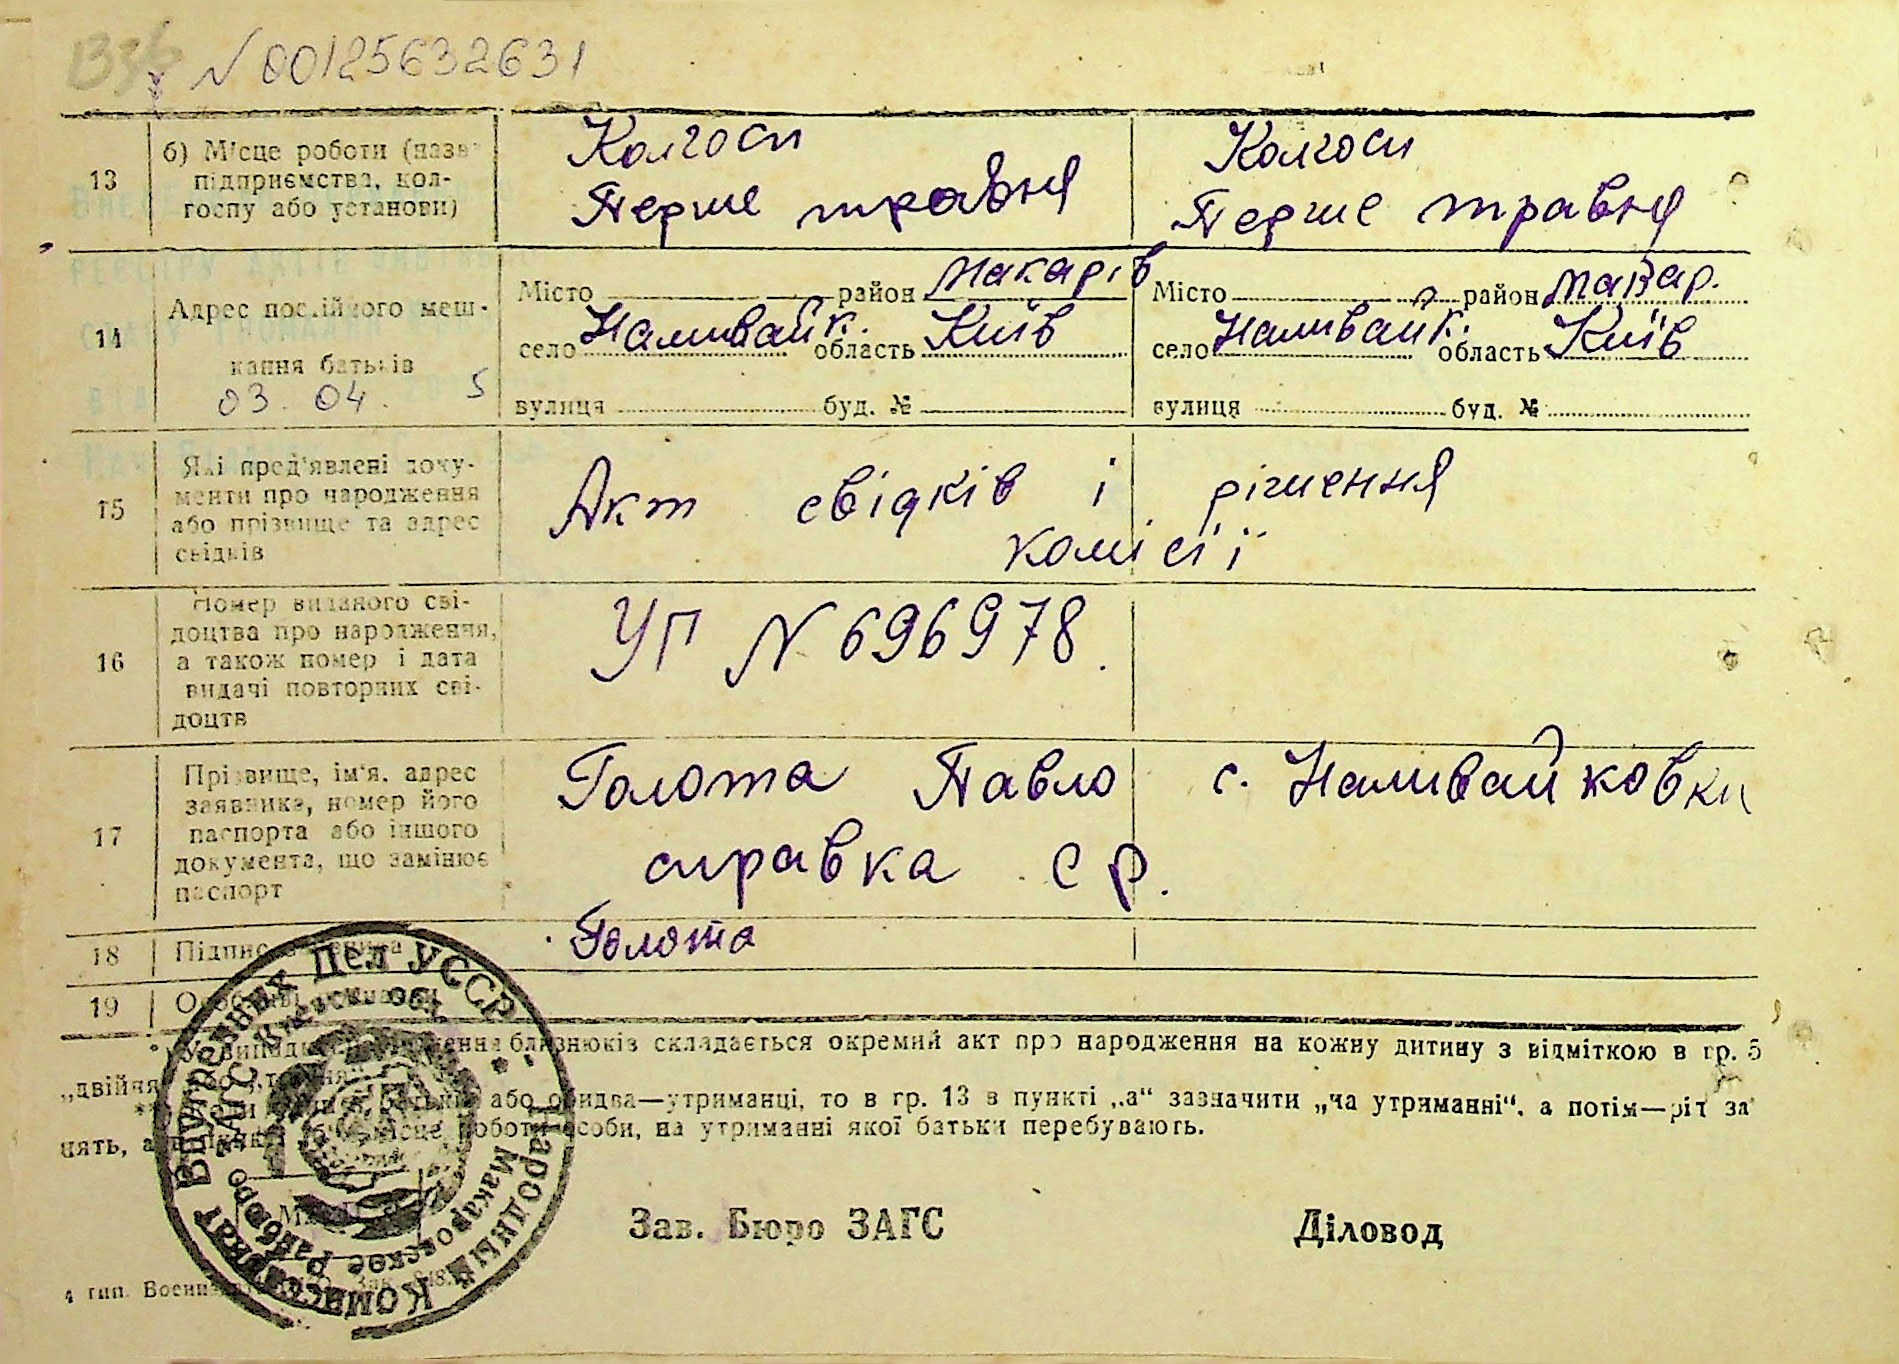 № 00125632631
13
б) Місце роботи (назва
підприємства, кол-
госпу або установи)
Колгосп
Перше травня
Колгосп
Перше травня
14
Адрес постійного меш-
кання батьків
03. 04. 5
Місто район Макарів
село Наливайк. область Київ
вулиця буд. №
Місто район Макар.
село Наливайк. область Київ
вулиця буд. №
15
Які пред'явлені доку-
менти про народження
або прізвище та адрес
свідків
Акт свідків і рішення
комісії
16
Номер виданого сві-
доцтва про народження,
а також номер і дата
видачі повторних сві-
доцтв
УП № 696978.
17
Прізвище, ім'я, адрес
заявника, номер його
паспорта або іншого
документа, що замінює
паспорт
Голота Павло с. Наливайковки
справка с р.
18
Підпис
Голота
19
*) У випадку народження близнюків складається окремий акт про народження на кожну дитину з відміткою в гр. 5
„двійня"
або обидва—утриманці, то в гр. 13 в пункті „а" зазначити „на утриманні", а потім—рід за
нять, а в пункті місце роботи особи, на утриманні якої батьки перебувають.
Народный Комиссариат Внутренних Дел УССР
Макаровское Райбюро ЗАГС Киевск. обл.
Зав. Бюро ЗАГС
Діловод
4 тип.